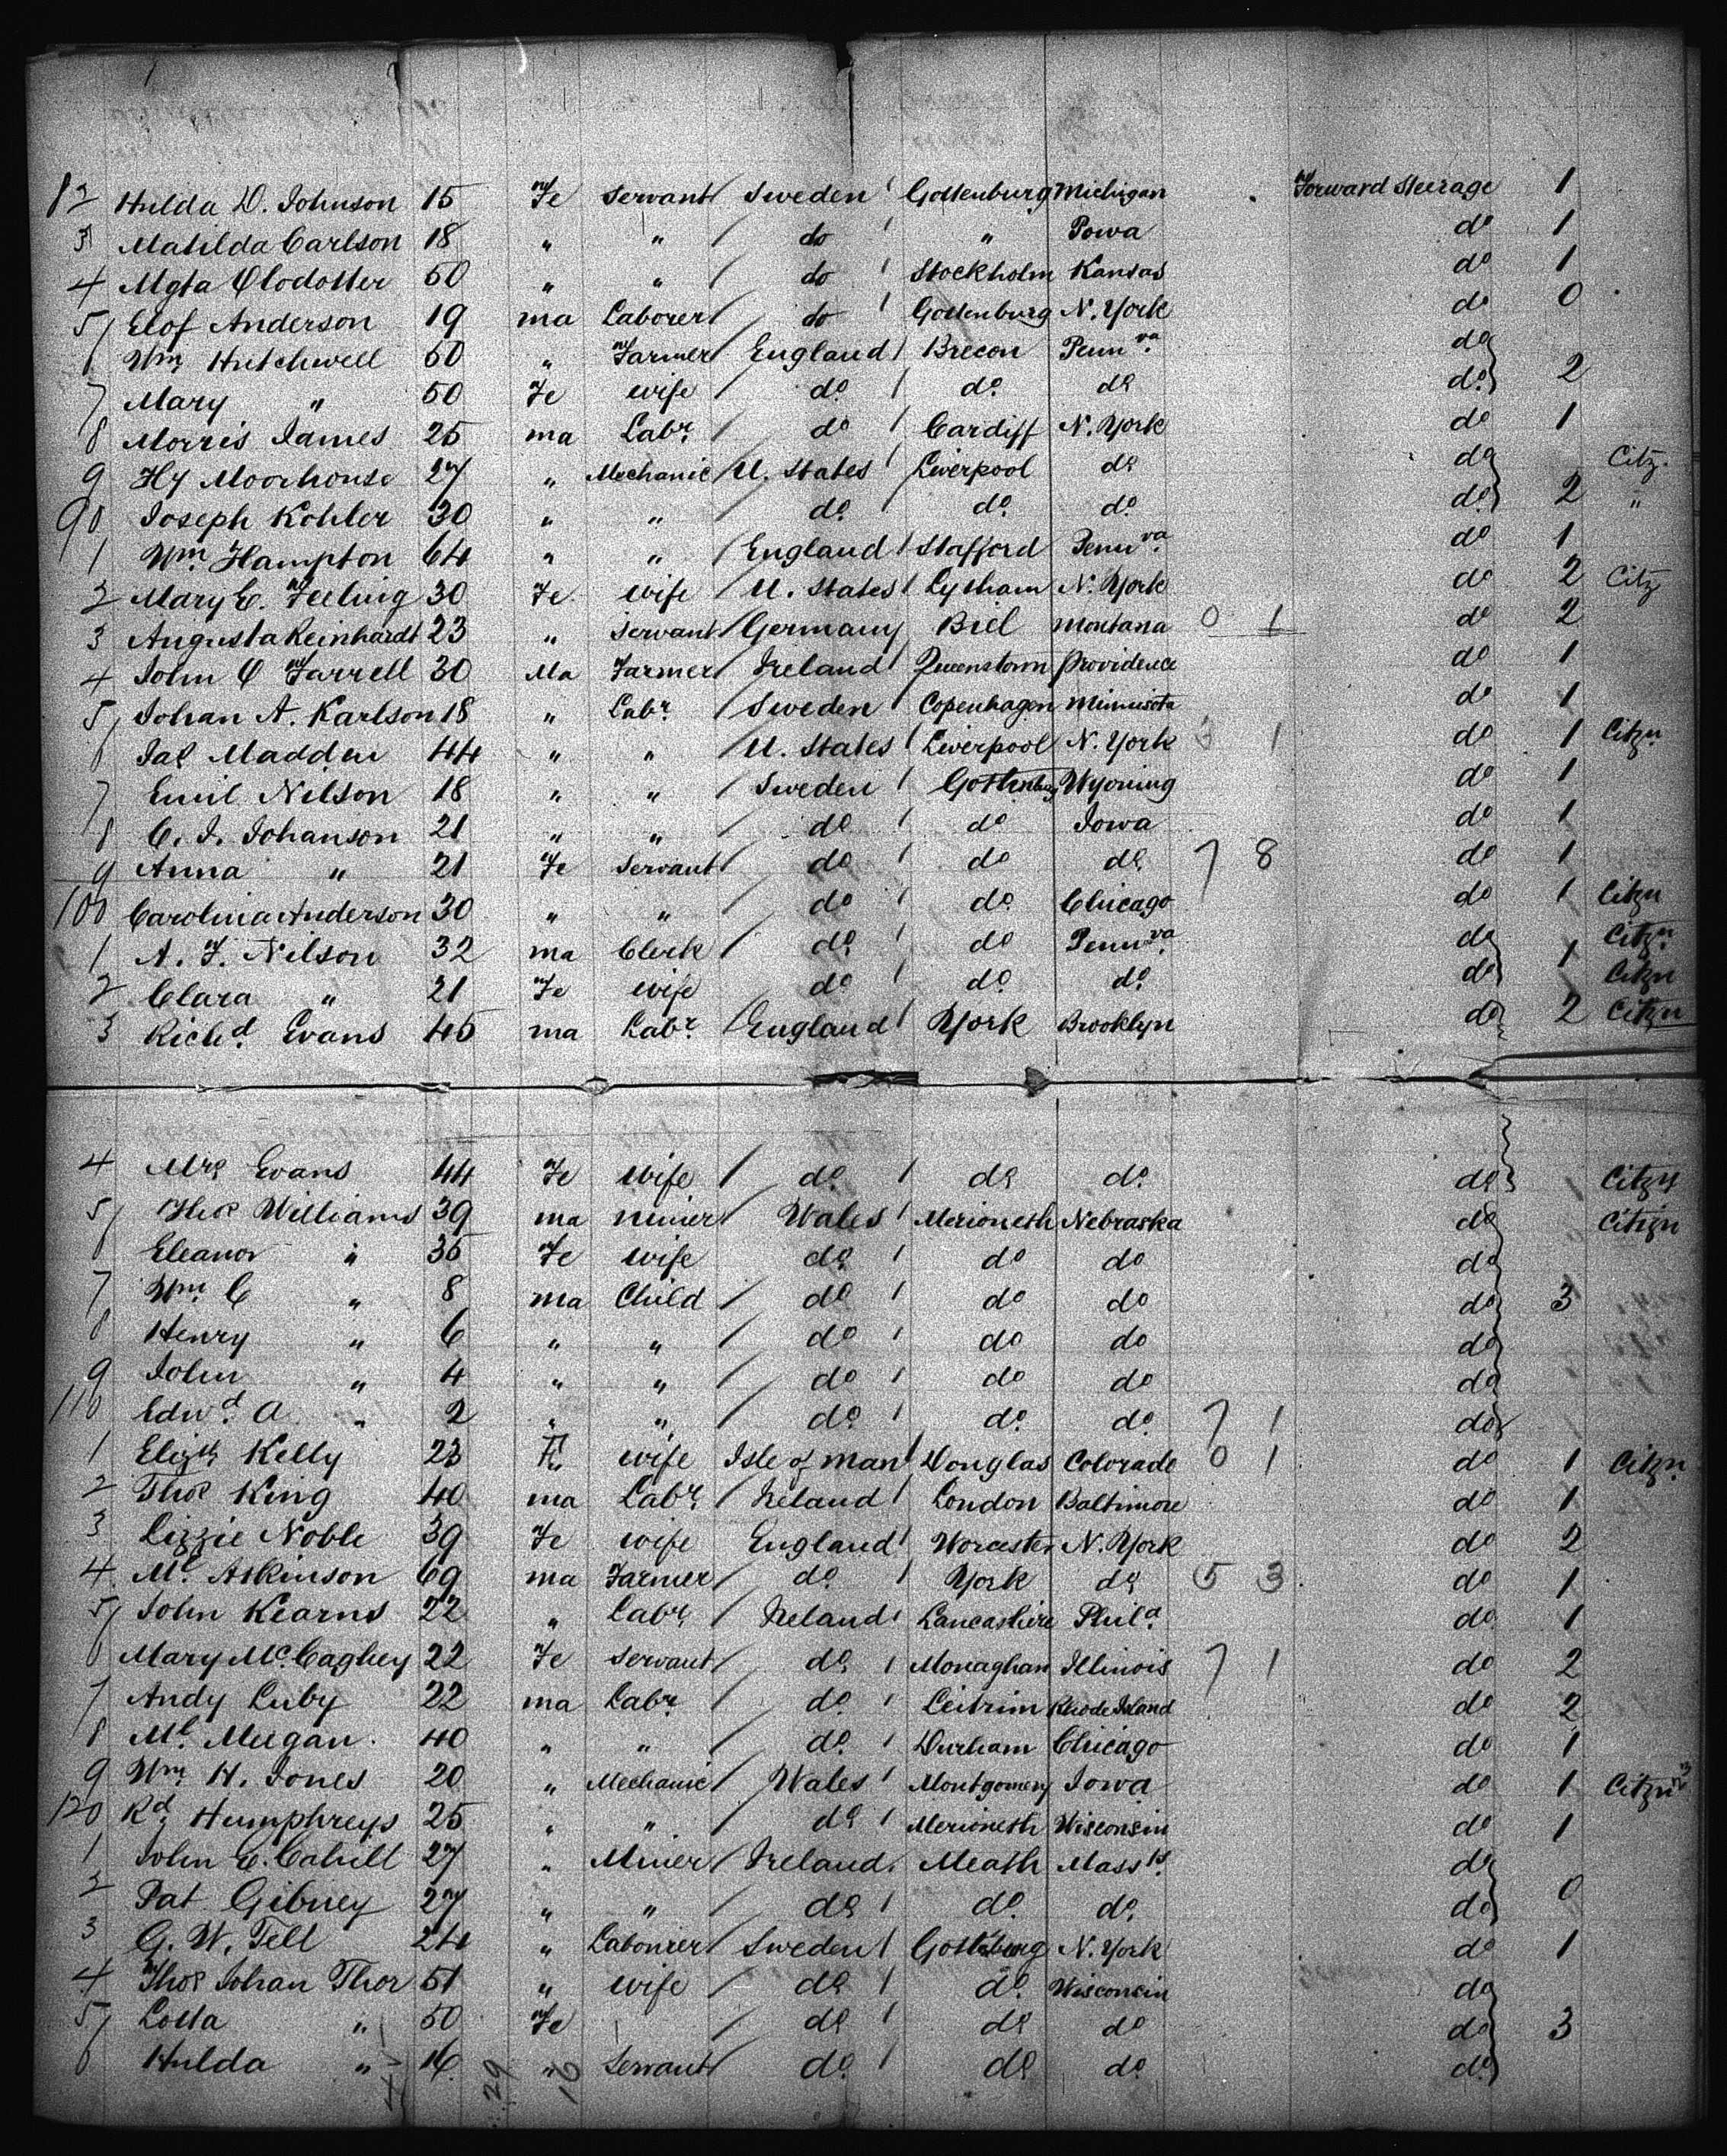 82 Hulda D. Johnson 15 Fe Servant Sweden Gottenburg Michigan Forward Steerage 1
3 Matilda Carlson 18 " " do " Iowa do 1
4 Mgta Olodotter 50 " " do Stockholm Kansas do 1
5 Elof Anderson 19 ma Laborer do Gottenburg N. York do 0
6 Wm Hutchwell 50 " Farmer England Brecon Pennva. do
7 Mary " 50 Fe wife do. do. do 2
8 Morris James 25 ma Labr. do Cardiff N. York do 1
9 Hy Moorhouse 27 " Mechanic U. States Liverpool do do Citz.
90 Joseph Kohler 30 " " do. do. do. do. 2 "
1 Wm. Hampton 64 " " England Stafford Pennva. do 1
2 Mary E. Feeling 30 Fe. wife U. States Lytham N. York do 2 Citz
3 Augusta Reinhardt 23 " Servant Germany Biel Montana 0 1 do 2
4 John O Farrell 30 Ma Farmer Ireland Queenstown Providence do 1
5 Johan A. Karlson 18 " Labr. Sweden Copenhagen Minnisota do 1
6 Jas Madden 44 " " U. States Liverpool N. York 3 1 do 1 Citzn
7 Emil Nilson 18 " " Sweden Gottenburg Wyoming do 1
8 C. J. Johanson 21 " " do do Iowa do 1
9 Anna " 21 Fe Servant do do do 7 8 do 1
100 Carolina Anderson 30 " " do do Chicago do 1 Citzn
1 A. F. Nilson 32 ma Clerk do do Pennva. do 1 Citzn
2 Clara " 21 Fe wife do do. do. do Citzn
3 Richd. Evans 45 ma Labr. England York Brooklyn do 2 Citzn
4 Mrs Evans 44 Fe wife do. do do. do Citzn
5 Thos Williams 39 ma miner Wales Merioneth Nebraska do Citizn
6 Eleanor " 35 Fe wife do do do do
7 Wm. C " 8 ma Child do do do do 3
8 Henry " 6 " " do do do do
9 John " 4 " " do do do do
110 Edwd. A " 2 " " do. do. do. 7 1 do
1 Elizth Kelly 23 Fe wife Isle of man Douglas Colorado 0 1 do 1 Citzn
2 Thos King 40 ma Labr. Ireland London Baltimore do 1
3 Lizzie Noble 39 Fe wife England Worcester N. York do 2
4 Ml Askinson 69 ma Farmer do. York do 5 3 do 1
5 John Kearns 22 " Labr. Ireland Lancashire Phila. do 1
6 Mary Mc.Caghey 22 Fe Servant do Monaghan Illinois 7 1 do 2
7 Andy Luby 22 ma Labr. do. Leitrim Rhode Island do 2
8 Ml. Meegan 40 " " do. Durham Chicago do 1
9 Wm H. Jones 20 " Mechanic Wales Montgomery Iowa do 1 Citzn
120 Rd. Humphreys 25 " " do Merioneth Wisconsin do 1
1 John E. Cahill 27 " Miner Ireland Meath Massts. do
2 Pat Gibney 27 " " do do. do. do 0
3 G. W. Tell 24 " Labourer Sweden Gottenburg N. York do 1
4 Thos Johan Thor 51 " wife do do. Wisconsin do
5 Lotta " 50 Fe do do do do 3
6 Hulda " 16 " Servant do. do do. do.
29 16